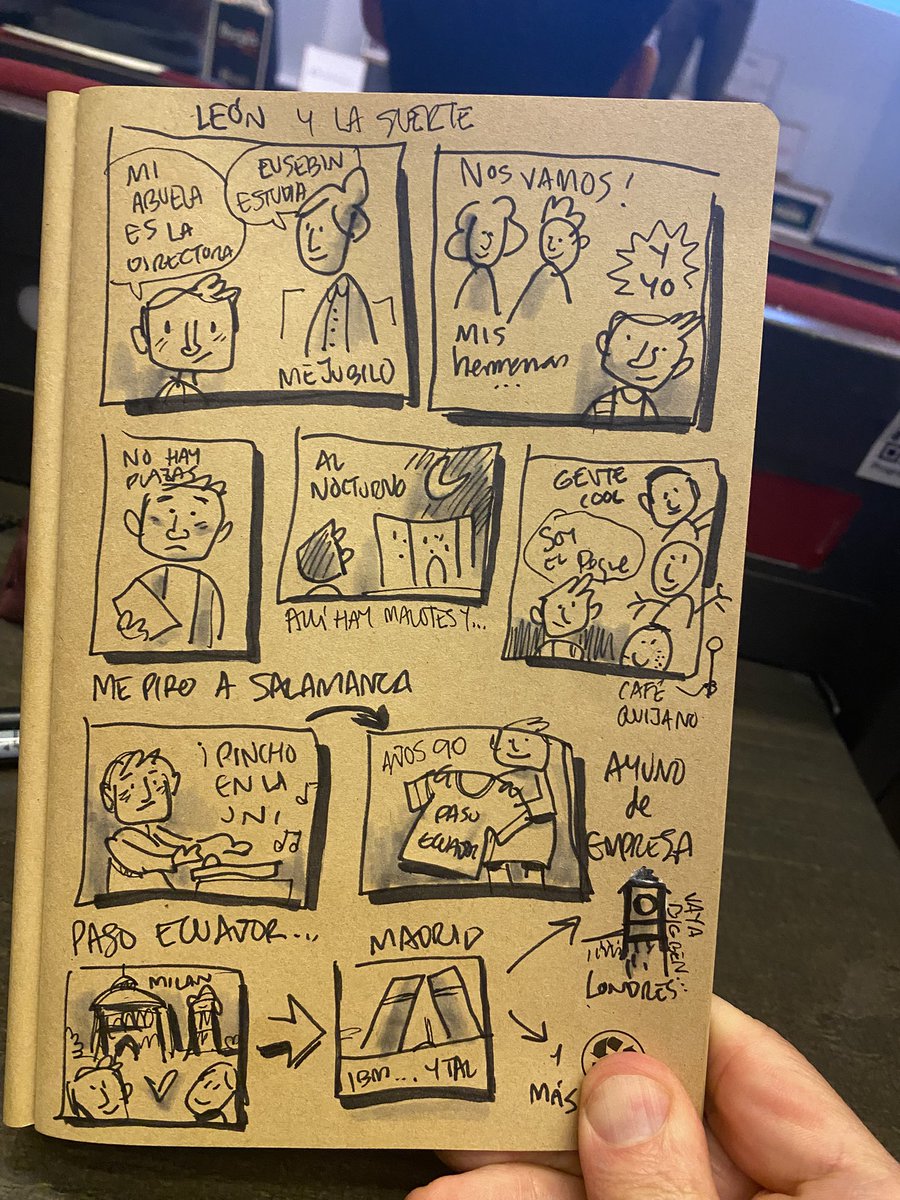 LEÓN Y LA SUERTE
MI
ABUELA
ES LA
DIRECTORA
EUSEBIN
ESTUDIA
ME JUBILO
NOS VAMOS!
Y
YO
MIS
hermanas
...
NO HAY
PLAZAS
AL
NOCTURNO
ALLÍ HAY MALOTES Y...
GENTE
COOL
SOY
EL Pogue
CAFÉ
QUIJANO
ME PIRO A SALAMANCA
¡PINCHO
EN LA
UNI
AÑOS 90
PASO
ECUADOR
AYUNO
de
EMPRESA
VAYA
BIG BEN...
LONDRES
PASO ECUADOR...
MILAN
MADRID
IBM... Y TAL
Y
MÁS